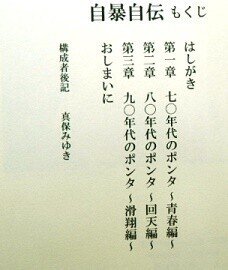 自暴自伝 もくじ
はしがき
第一章 七〇年代のポンタ〜青春編〜
第二章 八〇年代のポンタ〜回天編〜
第三章 九〇年代のポンタ〜滑翔編〜
おしまいに
構成者後記 真保みゆき